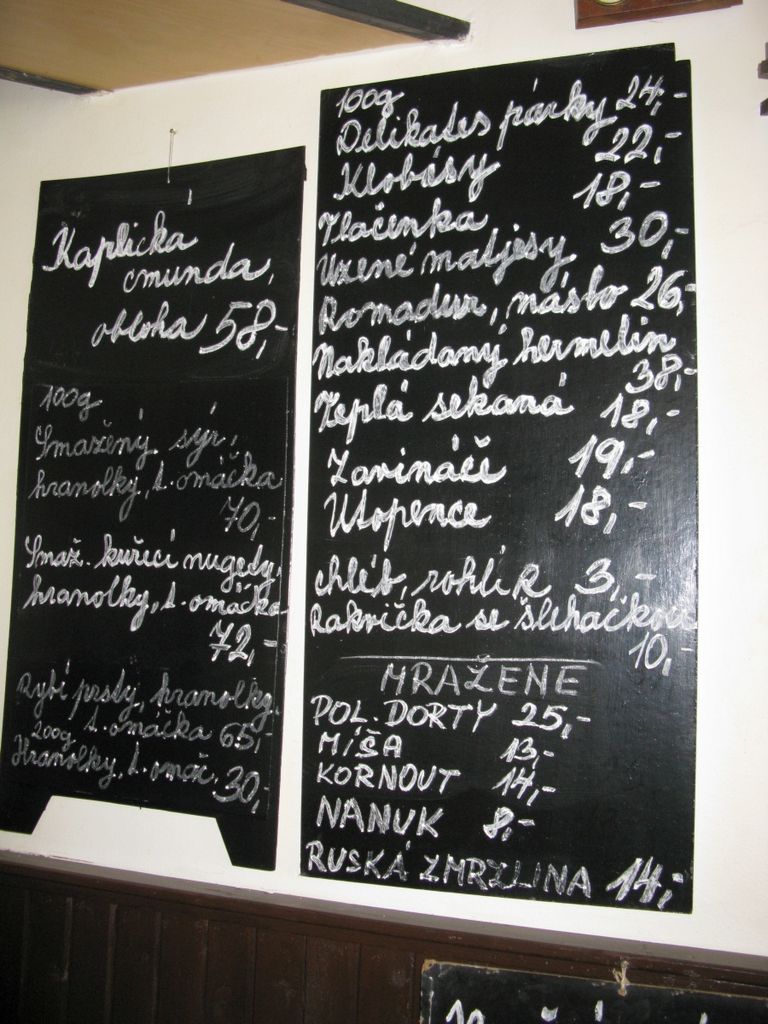 Kaplicka
cmunda,
obloha 58,-
100g
Smažený sýr,
hranolky, t. omáčka
70,-
Smaž. kuřecí nugedy,
hranolky, t. omáčka
72,-
Rybí prsty, hranolky,
200g t. omáčka 65,-
Hranolky, t. omáč. 30,-
100g
Delikates párky 24,-
Klobásy 22,-
Tlačenka 18,-
Uzené matjesy 30,-
Romadur, máslo 26,-
Nakládaný hermelín
38,-
Teplá sekaná 18,-
Zavináče 19,-
Utopence 18,-
chléb, rohlík 3,-
Rakvička se šlehačkou
10,-
MRAŽENE
POL. DORTY 25,-
MÍŠA 13,-
KORNOUT 14,-
NANUK 8,-
RUSKÁ ZMRZLINA 14,-